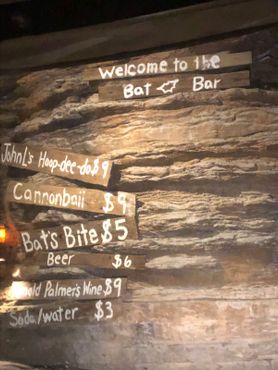 Welcome to the
Bat Bar
JohnL's Hoop-dee-do $9
Cannonball $9
Bat's Bite $5
Beer $6
nold Palmer's Wine $9
Soda/water $3